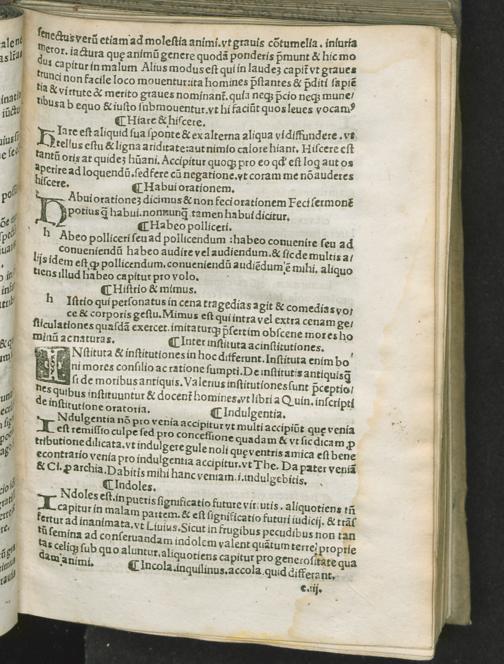 senectus verū etiam ad molestia animi. vt grauis cōtumelia. iniuria
meror. iactura que animū genere quodā ponderis pmunt & hic mo
dus capitur in malum Alius modus est qui in laudez capit vt graues
trunci non facile loco mouentur: ita homines pstantes & pditi sapiē
tia & virtute & merito graues nominant. quia neqз pcio neqз mune/
ribus a b equo & iusto submouentur. vt hi faciūt quos leues vocamꝰ
¶ Hiare & hiscere.
HIare est aliquid sua sponte & ex alterna aliqua vi diffundere. vt
tellus estu & ligna ariditate: aut nimio calore hiant. Hiscere est
tantū oris at quidez hūani. Accipitur quoqз pro eo qd' est loq aut os
aperire ad loquendū. sed fere cū negatione. vt coram me nō auderes
hiscere. ¶ Habui orationem.
HAbui orationez dicimus & non feci orationem Feci sermonē
potius q̄ habui. nonnunq̄ tamen habui dicitur.
¶ Habeo polliceri.
h Abeo polliceri seu ad pollicendum: habeo conuenire seu ad
conueniendū habeo audire vel audiendum. & sic de multis a/
lijs idem est qꝫ pollicendum. conueniendū audiēdum ē mihi. aliquo
tiens illud habeo capitur pro volo.
¶ Histrio & mimus.
h Istrio qui personatus in cena tragedias agit & comedias vo/
ce & corporis gestu. Mimus est qui intra vel extra cenam ge/
sticulationes quasdā exercet. imitaturqз psertim obscene mores ho
minū ac naturas. ¶ Inter instituta ac institutiones.
INstituta & institutiones in hoc differunt. Instituta enim bo/
ni mores consilio ac ratione sumpti. De institutis antiquisqз
si de moribus antiquis. Valerius institutiones sunt pceptio/
nes quibus instituuntur & docent homines. vt libri a Quin. inscripti
de institutione oratoria. ¶ Indulgentia.
INdulgentia nō pro venia accipitur vt multi accipiūt que venia
est remissio culpe sed pro concessione quadam & vt sic dicam p
tributione dilicata. vt indulgere gule noli que ventris amica est bene
econtrario venia pro indulgentia accipitur. vt The. Da pater veniā
& Ci. p archia. Dabitis mihi hanc veniam .i. indulgebitis.
¶ Indoles.
INdoles est. in pueris significatio future virtutis. aliquotiens tn̄
capitur in malam partem. & est significatio futuri iudicij. & trās
fertur ad inanimata. vt Liuius. Sicut in frugibus pecudibus non tan
tū semina ad conseruandam indolem valent quātum terre proprie
tas celiqз sub quo aluntur. aliquotiens capitur pro generositate qua
dam animi. ¶ Incola. inquilinus. accola quid differant.
c.iij.